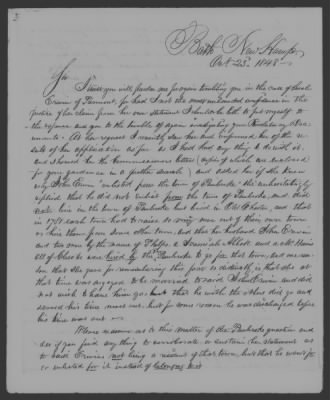 Bath New Hamps
Oct 23d 1848
Sir
I trust you will pardon me for again troubling you in the case of Sarah
Erwin of Piermont, for had I not the most confidence in the
justice of her claim from her own statement I should be loth to put myself to
the expense and you to the trouble of again
At her request I recently saw her and informed her of the re-
sults of her application as far as I had had any thing to do with it
and showed her the Commissioners letters (copies of which are enclosed
for your guidance in a further search) and asked her if she knew
why John Erwin enlisted from the town of Pembroke? she unhesitatingly
replied that he did not enlist from the town of Pembroke, and did
not live in the town of Pembroke but lived in and that
in 178 each town had to raise so many men out of their own town
or hire them from some other town, and that her husband John Erwin
and two men by the name of Phelps, a Jeremiah Abbott and a Mr
All of were hired by Pembroke to go for that town, and one rea-
son that she gave for remembering this fact so distinctly is that she at
that time was engaged to be married to said John Erwin and did
not wish to have him go, but that he with the others did go and
served his time out, but for some reason he was discharged before
his time was out
Please examine as to this matter of the Pembroke question and
see if you find any thing to corroborate or sustain her statement as
to said Erwin not being a resident of that town, but that he went for
or enlisted for it instead of